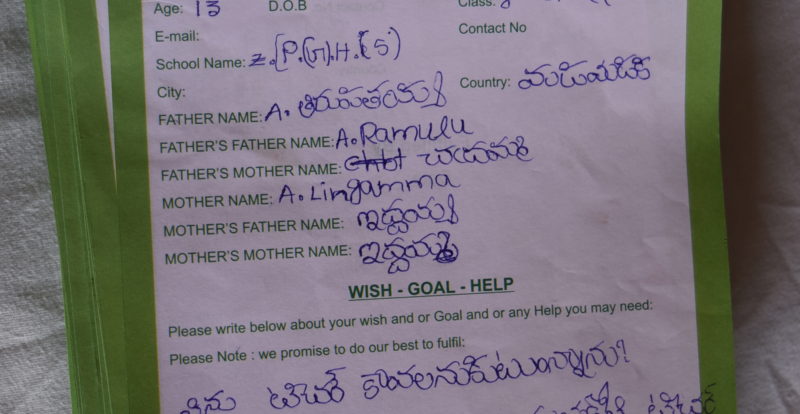 Age: 13 D.O.B Class:
E-mail: Contact No
School Name: Z.P.(G).H.(S)
City: Country:
FATHER NAME: A. తిరుపతయ్య
FATHER'S FATHER NAME: A. Ramulu
FATHER'S MOTHER NAME:
MOTHER NAME: A. Lingamma
MOTHER'S FATHER NAME: ఇద్దయ్య
MOTHER'S MOTHER NAME:
WISH - GOAL - HELP
Please write below about your wish and or Goal and or any Help you may need:
Please Note : we promise to do our best to fulfil:
నేను టీచర్ కావలనుకుటున్నాను?
టీచర్